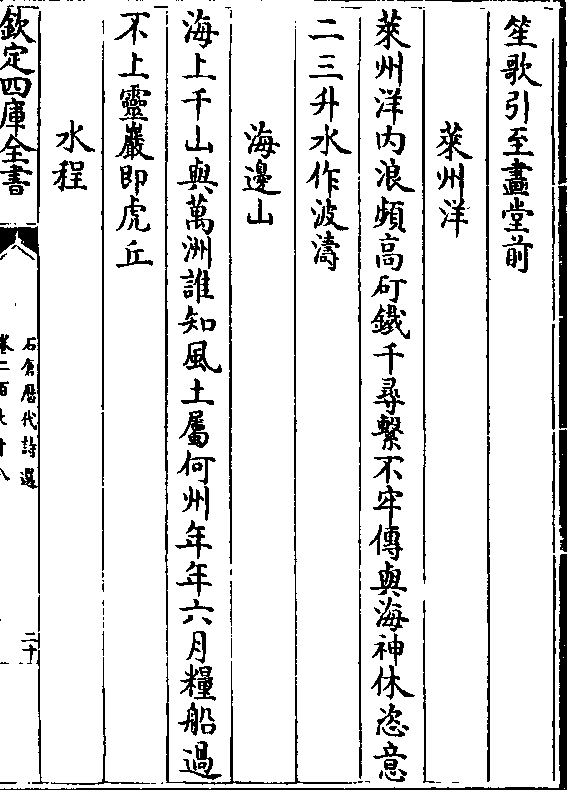 笙歌引至畫堂前
萊州洋
萊州洋内浪頻高矴鐵千尋繫不牢傳與海神休恣意
二三升水作波濤
海邊山
海上千山與萬洲誰知風土屬何州年年六月糧船過
不上靈巖即虎丘
水程
欽定四庫全書
石倉歴代詩選
二十